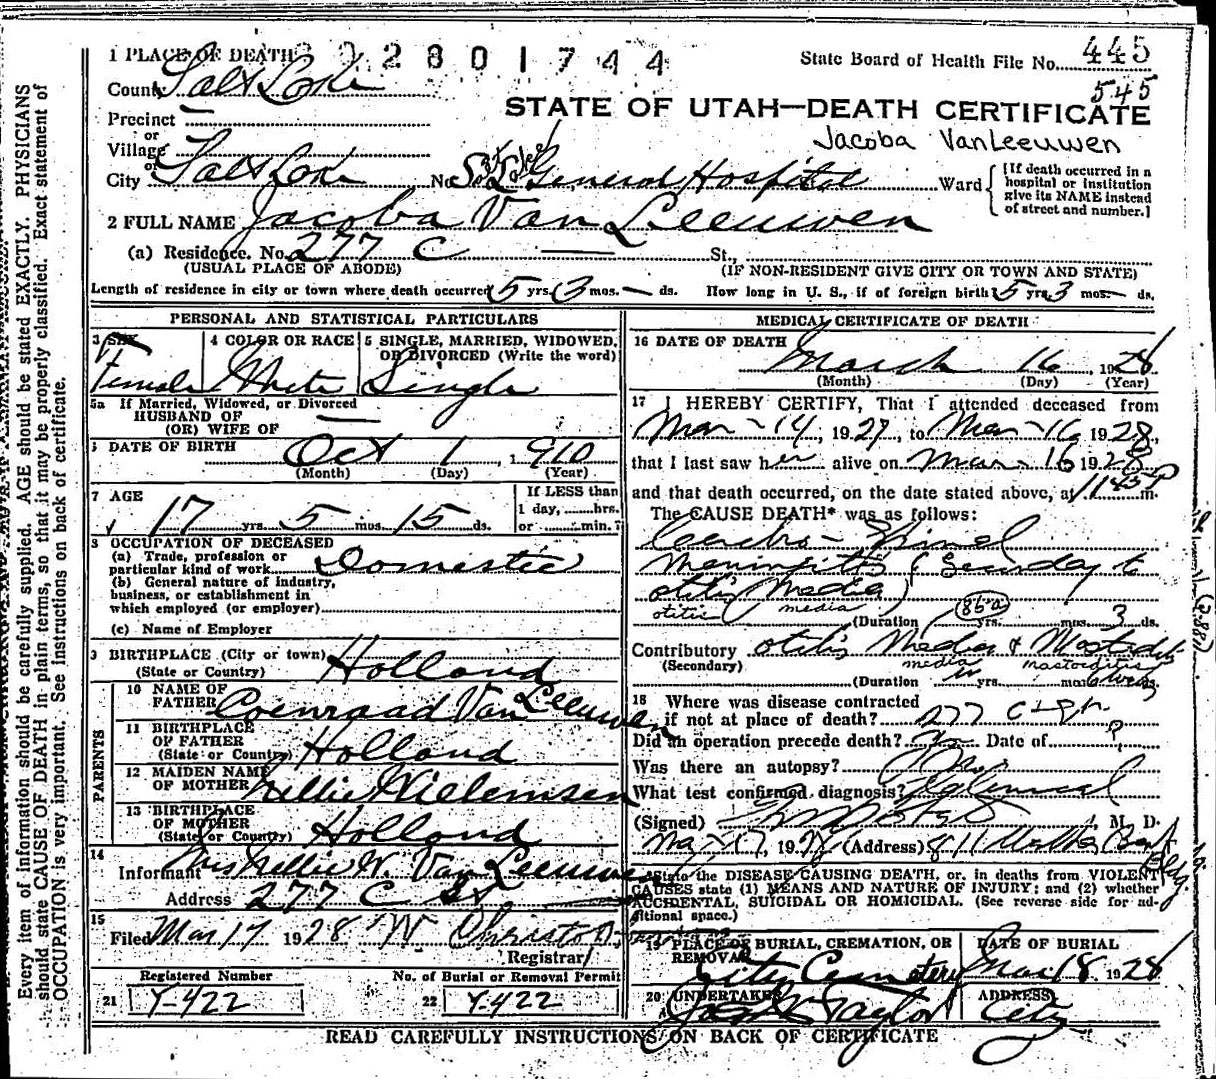 1 PLACE OF DEATH 3 0 2 8 0 1 7 4 4
State Board of Health File No. 445
County Salt Lake
545
STATE OF UTAH—DEATH CERTIFICATE
Precinct —
Jacoba VanLeeuwen
or
Village
or
City Salt Lake No. Salt Lake General Hospital Ward
[If death occurred in a hospital or institution give its NAME instead of street and number.]
2 FULL NAME Jacoba Van Leeuwen
(a) Residence. No. 277 C — St.,
(USUAL PLACE OF ABODE) (IF NON-RESIDENT GIVE CITY OR TOWN AND STATE)
Length of residence in city or town where death occurred 5 yrs. 3 mos. — ds. How long in U. S., if of foreign birth? 5 yrs. 3 mos. — ds.
PERSONAL AND STATISTICAL PARTICULARS
3 SEX 4 COLOR OR RACE 5 SINGLE, MARRIED, WIDOWED, OR DIVORCED (Write the word)
Female White Single
5a If Married, Widowed, or Divorced
HUSBAND OF
(OR) WIFE OF —
6 DATE OF BIRTH Oct 1, 1910
(Month) (Day) (Year)
7 AGE 17 yrs. 5 mos. 15 ds.
If LESS than 1 day, hrs. or min.?
8 OCCUPATION OF DECEASED
(a) Trade, profession or particular kind of work Domestic
(b) General nature of industry, business, or establishment in which employed (or employer)
(c) Name of Employer
9 BIRTHPLACE (City or town)
(State or Country) Holland
PARENTS
10 NAME OF FATHER Coenraad Van Leeuwen
11 BIRTHPLACE OF FATHER
(State or Country) Holland
12 MAIDEN NAME OF MOTHER Nellie Willemsen
13 BIRTHPLACE OF MOTHER
(State or Country) Holland
14
Informant Mrs Nellie W. Van Leeuwen
Address 277 C St
15
Filed Mar 17 1928
Registrar
Registered Number No. of Burial or Removal Permit
21 Y-422 22 Y-422
MEDICAL CERTIFICATE OF DEATH
16 DATE OF DEATH
March 16, 1928
(Month) (Day) (Year)
17 I HEREBY CERTIFY, That I attended deceased from
Mar - 14, 1927, to Mar - 16 1928,
that I last saw her alive on Mar - 16 1928
and that death occurred, on the date stated above, at m.
The CAUSE DEATH* was as follows:
Cerebro-Spinal
Meningitis (Secondary to
otitis Media)
otitis media
(Duration yrs. mos. 3 ds.
Contributory otitis Media & Mastoiditis
(Secondary) media mastoiditis
(Duration yrs. mos.
18 Where was disease contracted
if not at place of death? 277 C
Did an operation precede death? No Date of ?
Was there an autopsy? No
What test confirmed diagnosis? Clinical
(Signed) , M. D.
(Address)
*State the DISEASE CAUSING DEATH, or, in deaths from VIOLENT
CAUSES state (1) MEANS AND NATURE OF INJURY; and (2) whether
ACCIDENTAL, SUICIDAL OR HOMICIDAL. (See reverse side for additional space.)
19 PLACE OF BURIAL, CREMATION, OR REMOVAL DATE OF BURIAL
City Cemetery Mar 18 1928
20 UNDERTAKER ADDRESS
Taylor City
READ CAREFULLY INSTRUCTIONS ON BACK OF CERTIFICATE
Every item of information should be carefully supplied. AGE should be stated EXACTLY. PHYSICIANS
should state CAUSE OF DEATH in plain terms, so that it may be properly classified. Exact statement of
OCCUPATION is very important. See instructions on back of certificate.